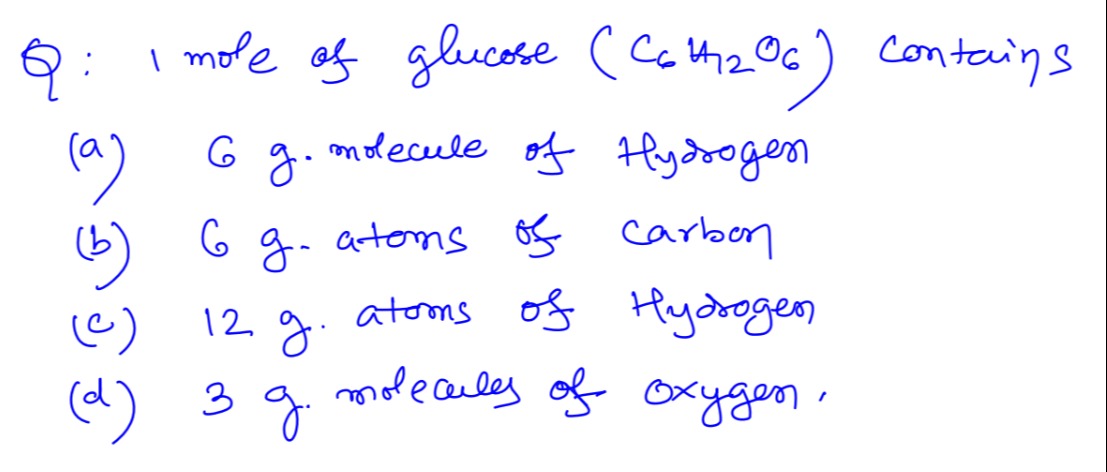 Q: 1 mole of glucose (C6H12O6) contains
(a) 6 g. molecule of Hydrogen
(b) 6 g- atoms of carbon
(c) 12 g. atoms of Hydrogen
(d) 3 g. molecules of oxygen.